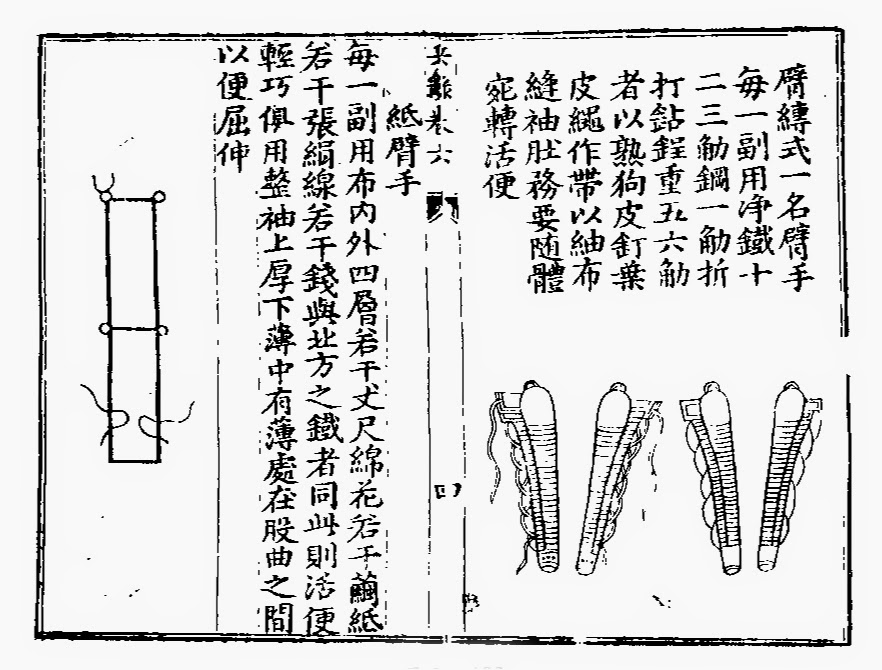 臂縳式一名臂手
每一副用净鐵十
二三觔鋼一觔折
打鉆鋥重五六觔
者以熟狗皮釘葉
皮繩作帶以紬布
縫袖肚務要随體
宛轉活便
卷六
紙臂手
每一副用布内外四層若干丈尺綿花若干繭紙
若干張絹線若干錢與北方之鐵者同此則活便
輕巧俱用整袖上厚下薄中有薄處在股曲之間
以便屈伸